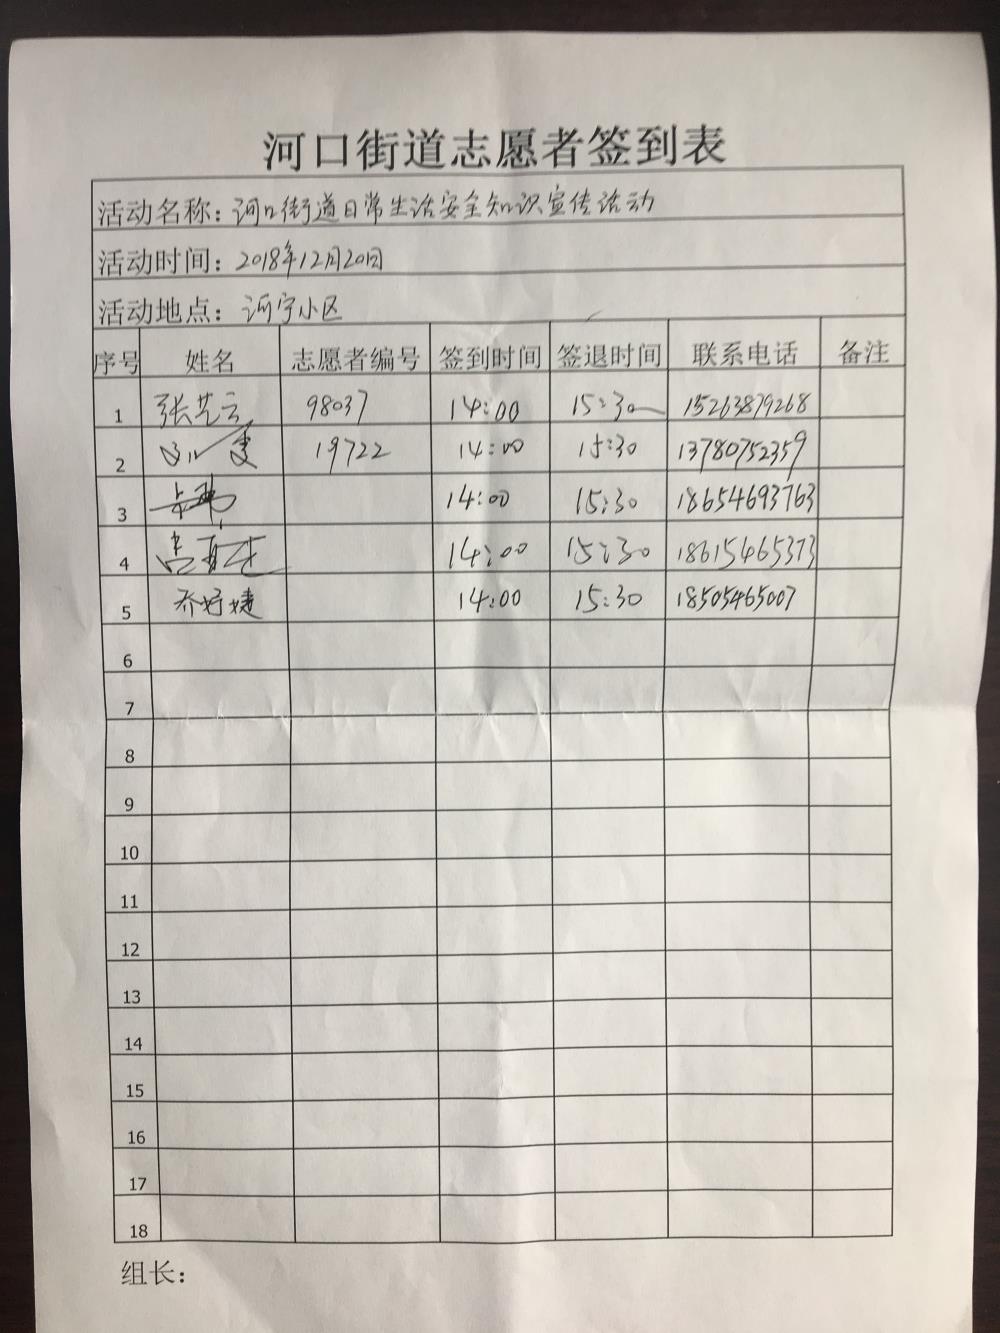 河口街道志愿者签到表
活动名称：河口街道日常生活安全知识宣传活动
活动时间：2018年12月20日
活动地点：河宁小区
序号 姓名 志愿者编号 签到时间 签退时间 联系电话 备注
1 张艺云 98037 14:00 15:30 15263879268
2 19722 14:00 15:30 13780752359
3 14:00 15:30 18654693763
4 14:00 15:30 18615465373
5 乔婷婕 14:00 15:30 18505465007
6
7
8
9
10
11
12
13
14
15
16
17
18
组长：